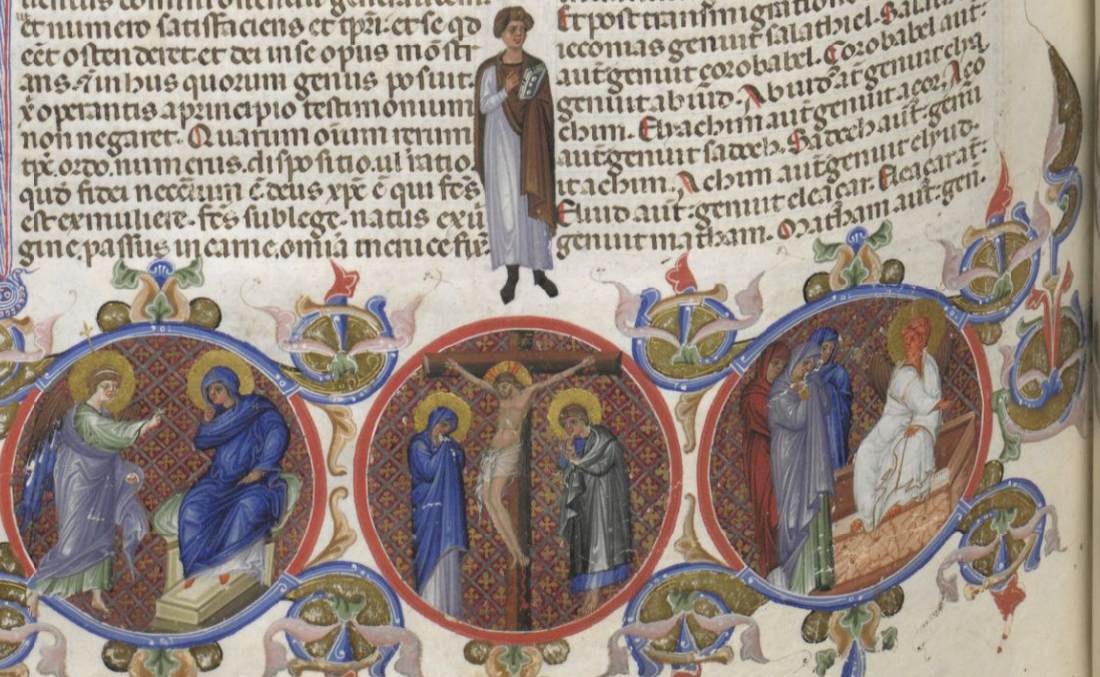 et numero satisfaciens et tpris et se qd
eet ostenderet et dei in se opus monstr
ans. in his quorum genus posuit
xp̄i operantis a principio testimonium
non negaret. Quarum oium rerum
tps. ordo. numerus. dispositio. ul ratio.
quod fidei neccium ē deus xpc ē qui fcs
est ex muliere. fcs sub lege. natus ex uir
gine. passus in carne. omia in cruce fix
Et post transmigratione
ieconias genuit salathiel. Salat
aut genuit çorobabel. Çorobabel aut.
genuit abiud. Abiud at genuit elya
chim. Elyachim aut genuit açor. Aço
aut genuit sadoch. Sadoch aut. genu
it achim. Achim aut genuit elyud.
Eliud aut. genuit eleaçar. Eleaçar at.
genuit matham. Matham aut. gen.